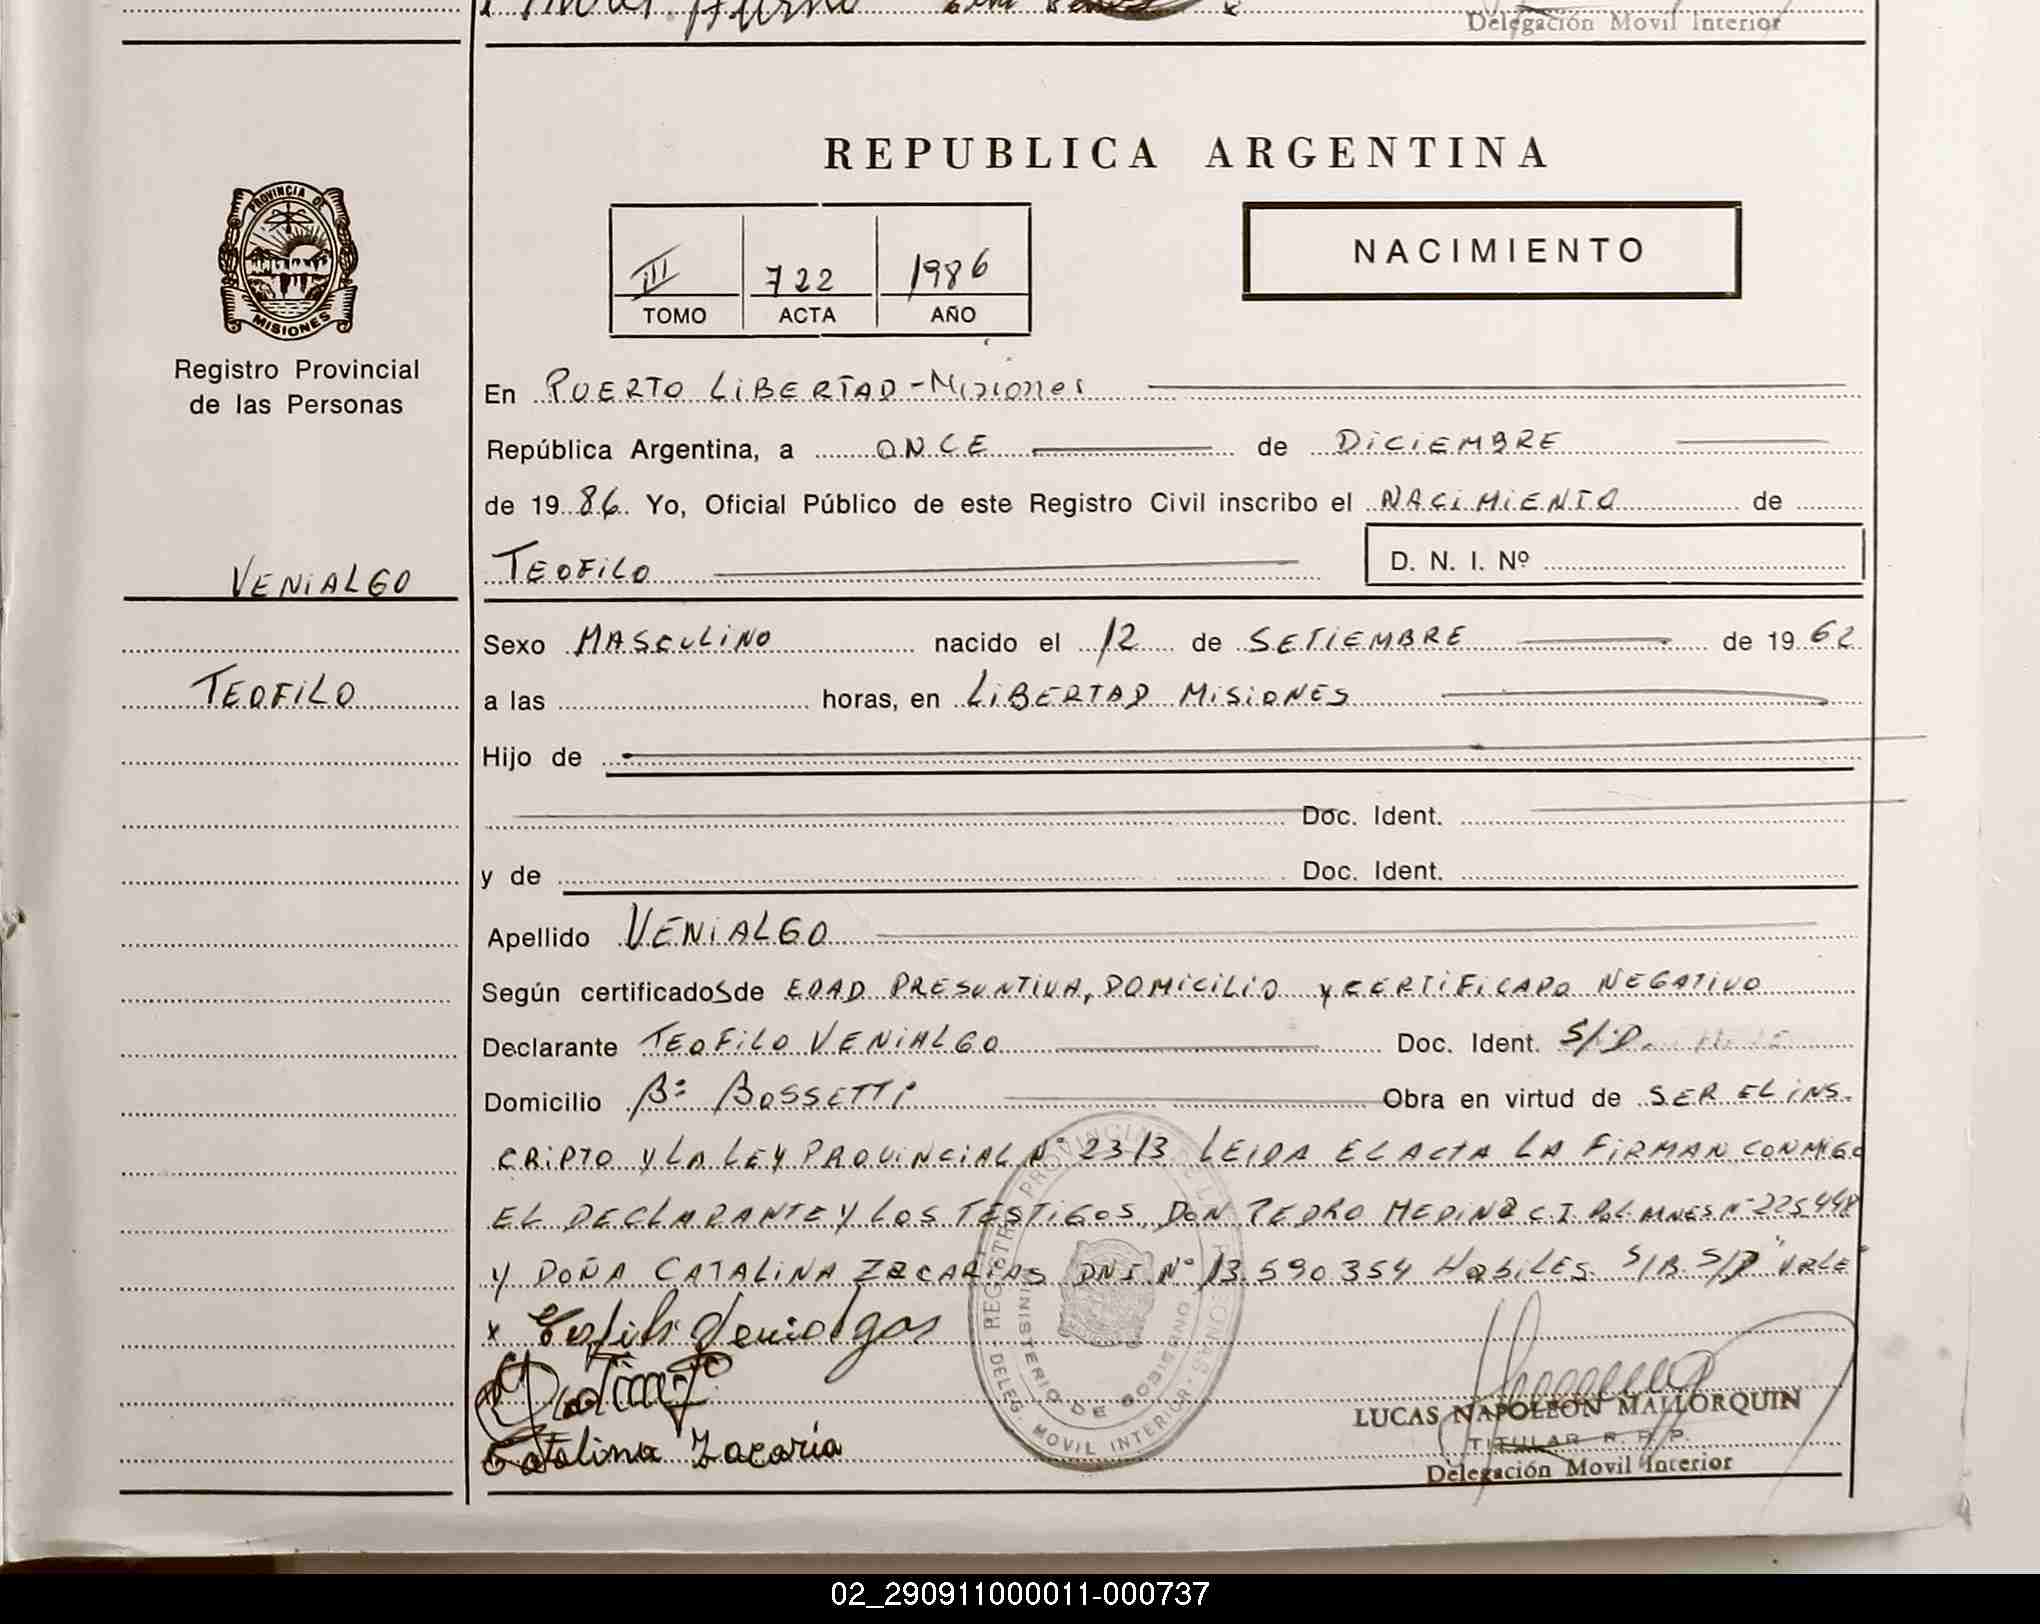 Delegación Movil Interior
REPUBLICA ARGENTINA
PROVINCIA DE
MISIONES
Registro Provincial
de las Personas
III 722 1986
TOMO ACTA AÑO
NACIMIENTO
En PUERTO LIBERTAD - Misiones
República Argentina, a ONCE de DICIEMBRE
de 1986. Yo, Oficial Público de este Registro Civil inscribo el NACIMIENTO de
VENIALGO
TEOFILO D. N. I. Nº
Sexo MASCULINO nacido el 12 de SETIEMBRE de 1962
TEOFILO
a las horas, en LIBERTAD MISIONES
Hijo de
Doc. Ident.
y de Doc. Ident.
Apellido VENIALGO
Según certificados de EDAD PRESUNTIVA, DOMICILIO y CERTIFICADO NEGATIVO
Declarante TEOFILO VENIALGO Doc. Ident. S/D.
Domicilio Bº BOSSETTI Obra en virtud de SER EL INS-
CRIPTO Y LA LEY PROVINCIAL Nº 2313 LEIDA EL ACTA LA FIRMAN CONMIGO
EL DECLARANTE Y LOS TESTIGOS, DON PEDRO MEDINA C.I. POL. MNES Nº 225448
Y DOÑA CATALINA ZACARIAS DNI Nº 13.590354 HABILES S/B. S/D "VALE"
x Teofilo Venialgos
Catalina Zacaria
REGISTRO PROVINCIAL DE LAS PERSONAS
MINISTERIO DE GOBIERNO
DELEG. MOVIL INTERIOR
LUCAS NAPOLEON MALLORQUIN
TITULAR R. P. P.
Delegación Movil Interior
02_290911000011-000737